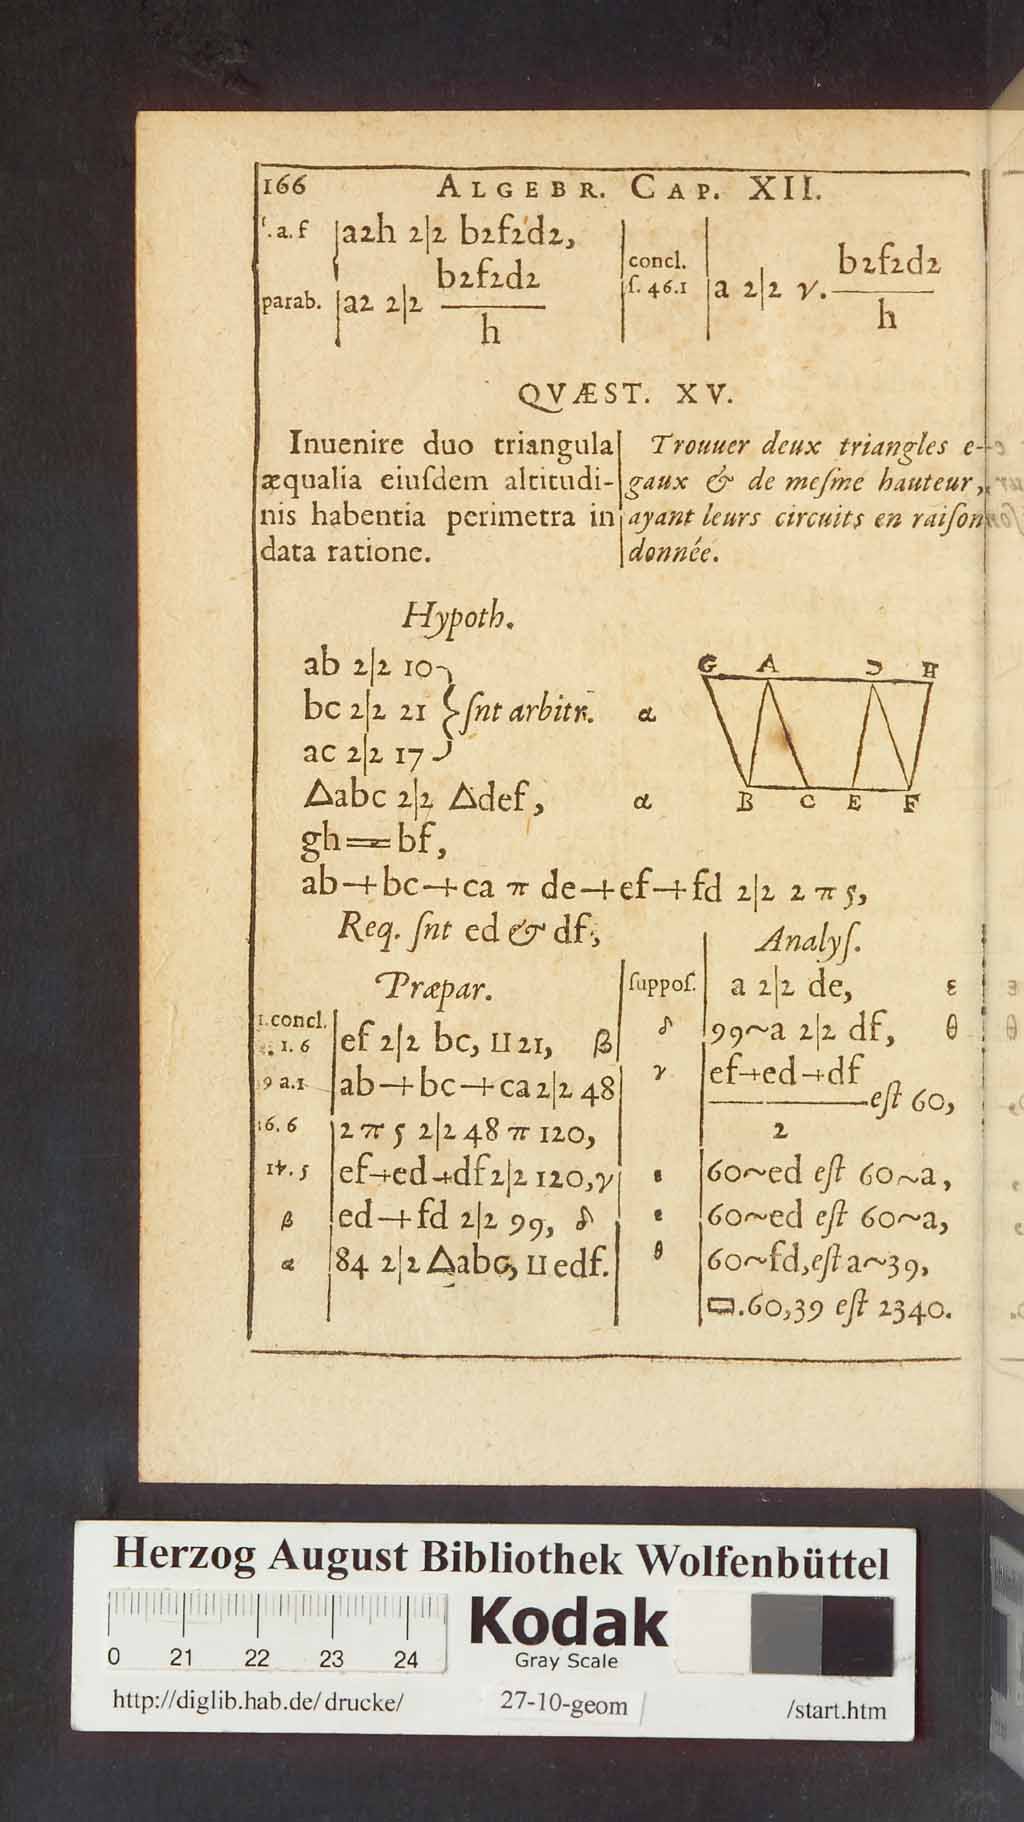 166 ALGEBR. CAP. XII.
.a.f a2h 2|2 b2f2d2,
parab. a2 2|2 b2f2d2
h
concl.
ſ. 46.1 a 2|2 γ. b2f2d2
h
QVÆST. XV.
Inuenire duo triangula
æqualia eiuſdem altitudi-
nis habentia perimetra in
data ratione.
Trouuer deux triangles e-
gaux & de meſme hauteur,
ayant leurs circuits en raiſon
donnée.
Hypoth.
ab 2|2 10
bc 2|2 21 } ſnt arbitr. α
ac 2|2 17
Δabc 2|2 Δdef, α
gh = bf,
ab+bc+ca π de+ef+fd 2|2 2 π 5,
Req. ſnt ed & df,
G A D H
B C E F
Præpar.
1.concl.
1.6 ef 2|2 bc, II 21, β
9 a.1 ab+bc+ca 2|2 48
6.6 2 π 5 2|2 48 π 120,
14.5 ef+ed+df 2|2 120, γ
β ed+fd 2|2 99, δ
α 84 2|2 Δabc, II edf.
Analyſ.
ſuppoſ. a 2|2 de, ε
δ 99~a 2|2 df, θ
γ ef+ed+df
eſt 60,
2
ε 60~ed eſt 60~a,
ε 60~ed eſt 60~a,
θ 60~fd, eſt a~39,
▭.60,39 eſt 2340.
Herzog August Bibliothek Wolfenbüttel
0 21 22 23 24
Kodak
Gray Scale
http://diglib.hab.de/drucke/ 27-10-geom /start.htm